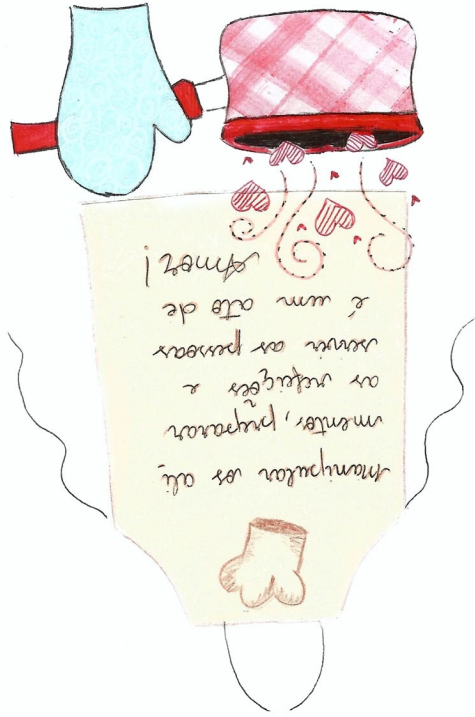 Manipular os ali
mentos, preparar
as refeições e
servir as pessoas
é um ato de
Amor!